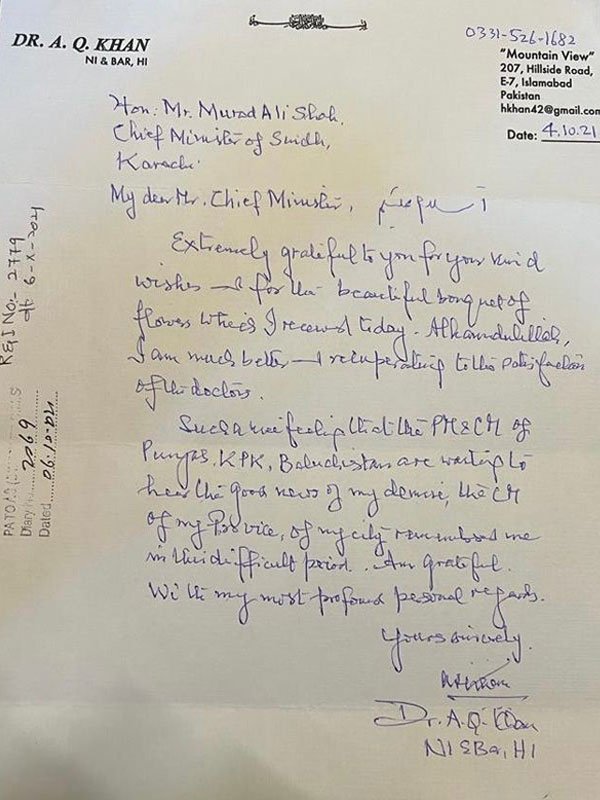 DR. A. Q. KHAN
NI & BAR, HI
0331-526-1682
"Mountain View"
207, Hillside Road,
E-7, Islamabad
Pakistan
hkhan42@gmail.com
Date: 4.10.21
Hon. Mr. Murad Ali Shah,
Chief Minister of Sindh,
Karachi.
My dear Mr. Chief Minister,
Extremely grateful to you for your kind
wishes & for the beautiful bouquet of
flowers which I received today. Alhamdulillah,
I am much better & recuperating to the satisfaction
of the doctors.
Such a nice feeling that the PM & CM of
Punjab, KPK, Baluchistan are waiting to
hear the good news of my demise, the CM
of my Province, of my city remembered me
in this difficult period. Am grateful.
With my most profound personal regards.
Yours sincerely.
Dr. A. Q. Khan
NI & Bar, HI
R&I No:- 2779
dt: 6-X-2021
Diary No. 2069
Dated 06/10/21